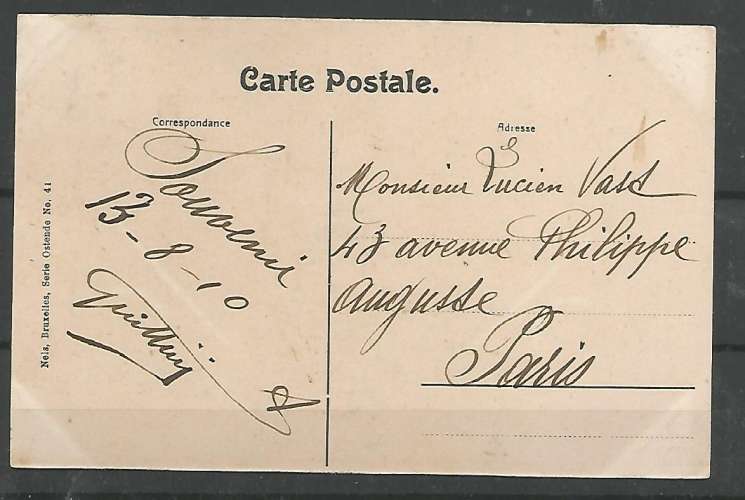 Carte Postale.
Correspondance
Souvenir
13-8-10
Nels, Bruxelles, Serie Ostende No. 41
Adresse
Monsieur Lucien Vast
43 avenue Philippe
Augusse
Paris